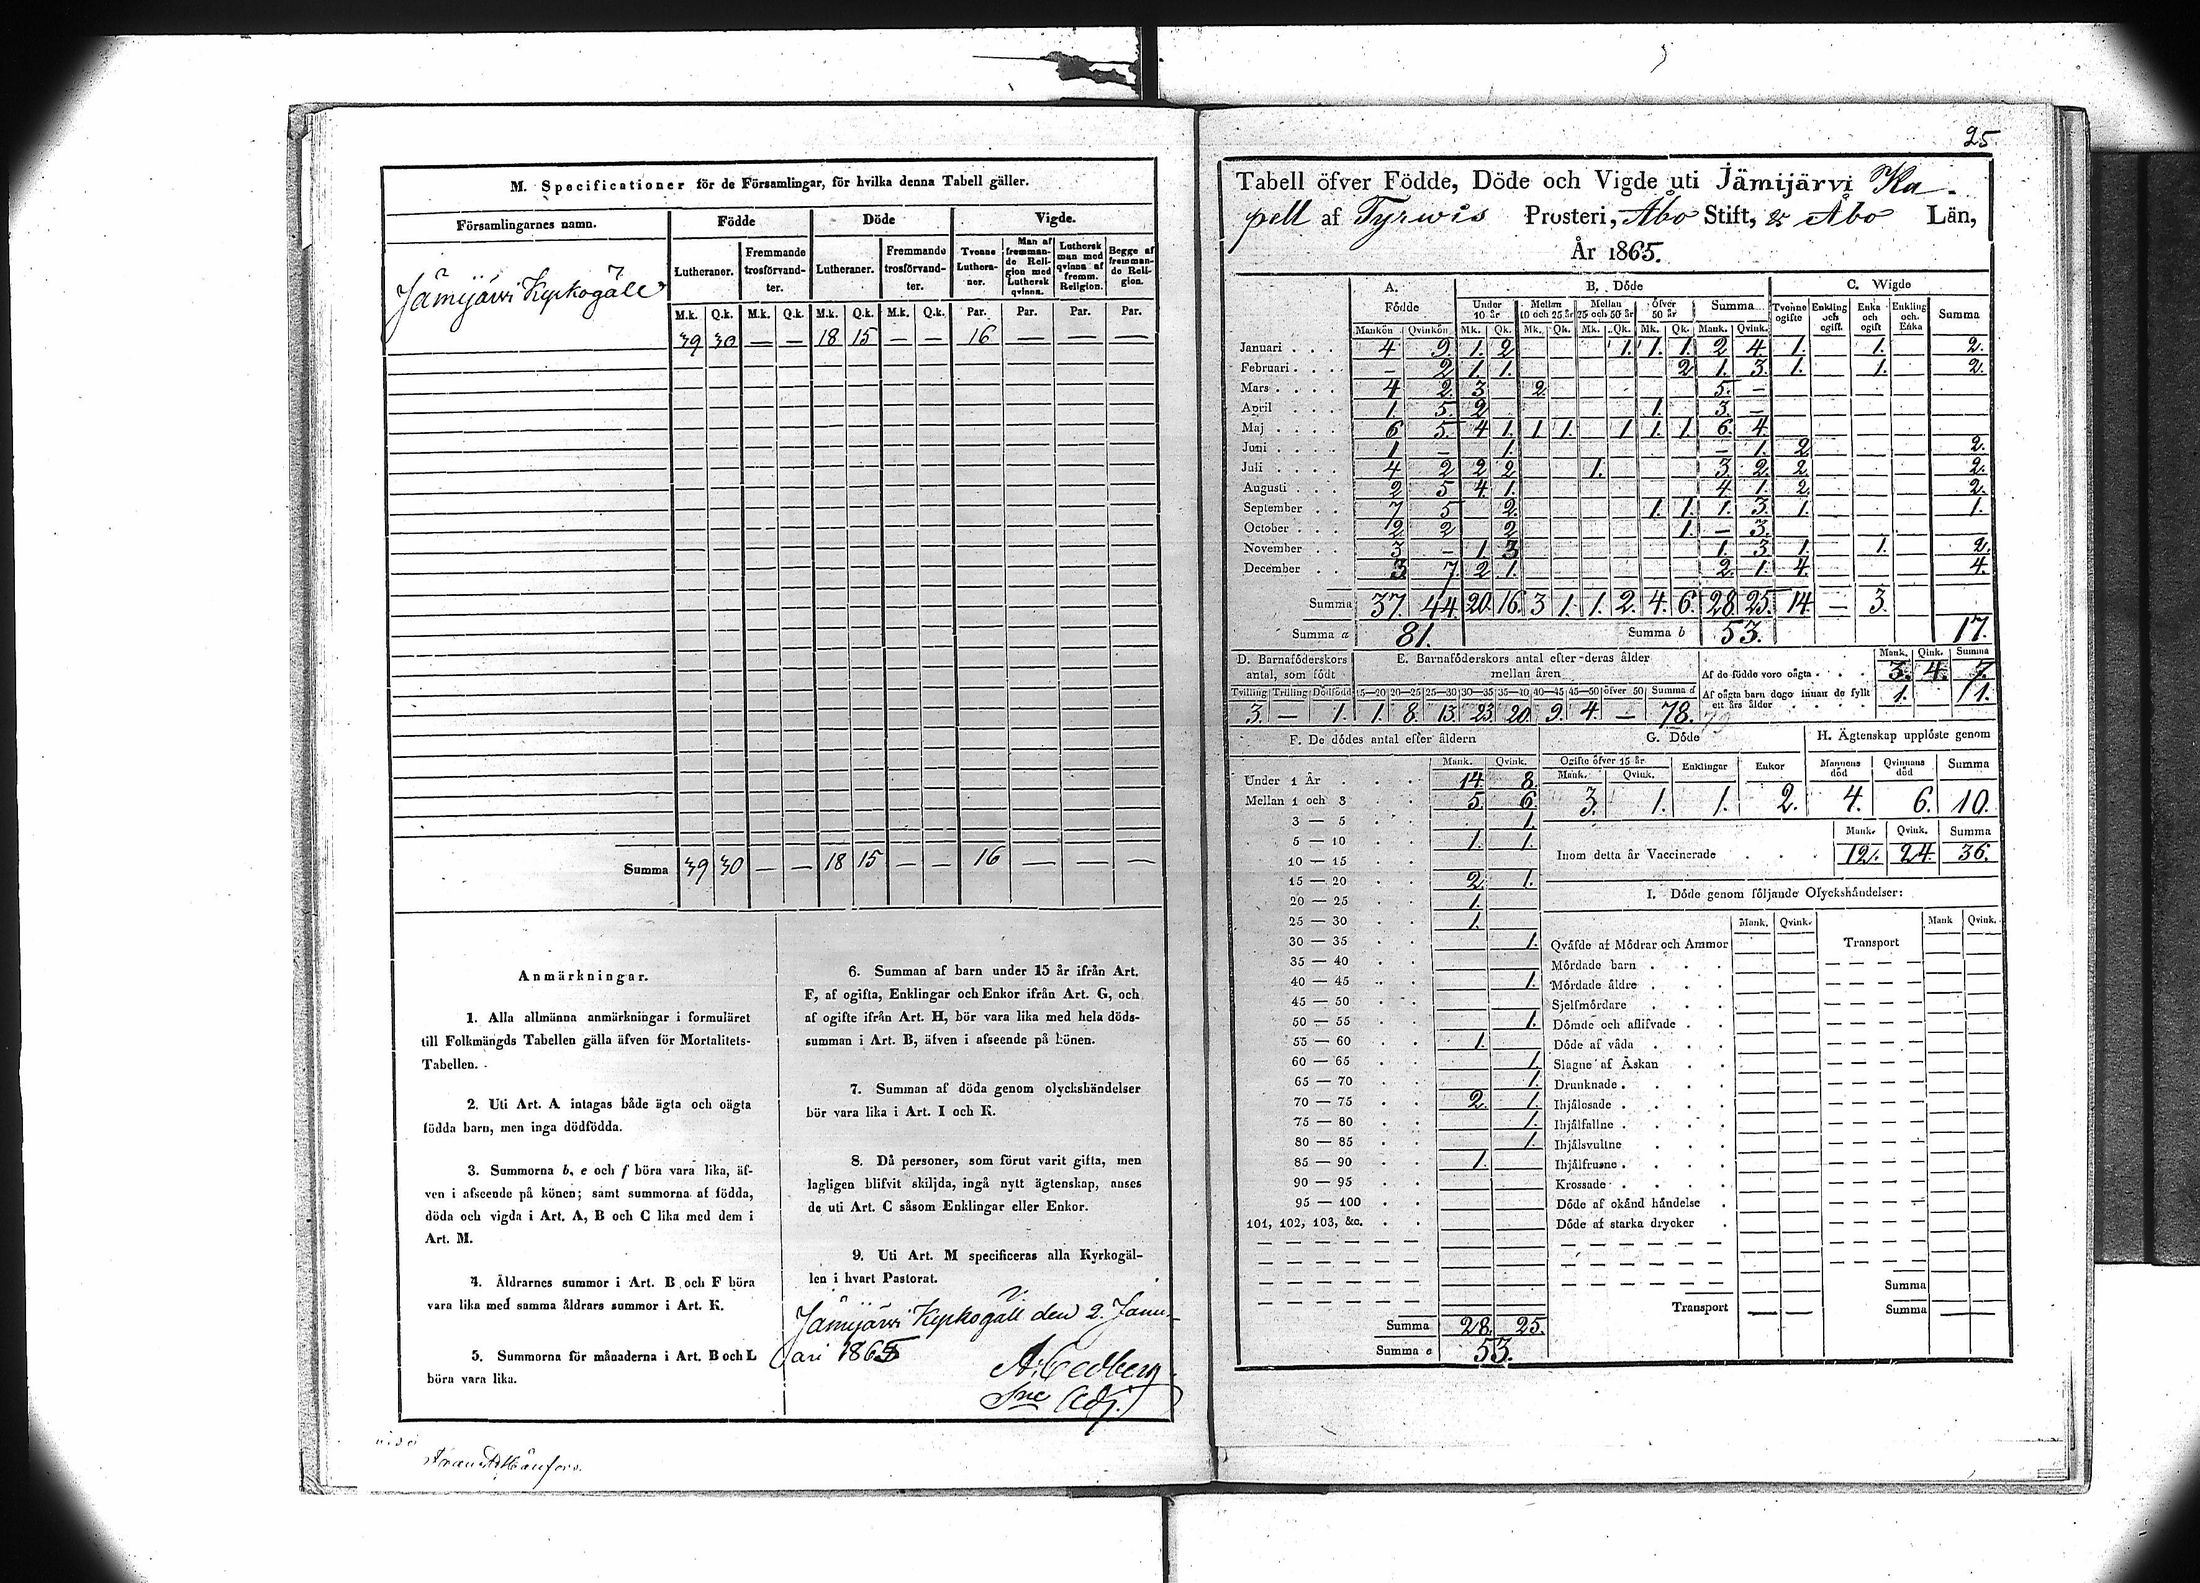 M. Specificationer för de Församlingar, för hvilka denna Tabell gäller.
Församlingarnes namn. Födde Döde Vigde.
Lutheraner. Fremmande trosförvandter. Lutheraner. Fremmande trosförvandter. Tvenne Lutheraner. Man af fremmande Religion med Luthersk qvinna. Luthersk man med qvinna af fremm. Religion. Begge af fremmande Religion.
M.k. Q.k. M.k. Q.k. M.k. Q.k. M.k. Q.k. Par. Par. Par. Par.
Jämijärvi Kyrkogäll 39 30 — — 18 15 — — 16 — — —
Summa 39 30 — — 18 15 — — 16 — — —
Anmärkningar.
1. Alla allmänna anmärkningar i formuläret
till Folkmängds Tabellen gälla äfven för Mortalitets-
Tabellen.
2. Uti Art. A intagas både ägta och oägta
födda barn, men inga dödfödda.
3. Summorna b, e och f böra vara lika, äf-
ven i afseende på könen; samt summorna af födda,
döda och vigda i Art. A, B och C lika med dem i
Art. M.
4. Åldrarnes summor i Art. B och F böra
vara lika med samma åldrars summor i Art. K.
5. Summorna för månaderna i Art. B och L
böra vara lika.
6. Summan af barn under 15 år ifrån Art.
F, af ogifta, Enklingar och Enkor ifrån Art. G, och
af ogifte ifrån Art. H, bör vara lika med hela döds-
summan i Art. B, äfven i afseende på könen.
7. Summan af döda genom olyckshändelser
bör vara lika i Art. I och K.
8. Då personer, som förut varit gifta, men
lagligen blifvit skiljda, ingå nytt ägtenskap, anses
de uti Art. C såsom Enklingar eller Enkor.
9. Uti Art. M specificeras alla Kyrkogäl-
len i hvart Pastorat.
Jämijärvi Kyrkogäll den 2. Janu-
ari 1865
A. Cedberg
25
Tabell öfver Födde, Döde och Vigde uti Jämijärvi Ka-
pell af Tyrwis Prosteri, Åbo Stift, & Åbo Län,
År 1865.
A. Födde B. Döde C. Wigde
Under 10 år Mellan 10 och 25 år Mellan 25 och 50 år Öfver 50 år Summa Tvenne ogifte Enkling och ogift. Enka och ogift Enkling och Enka Summa
Mankön Qvinkön Mk. Qk. Mk. Qk. Mk. Qk. Mk. Qk. Mank. Qvink.
Januari . . . 4 9. 1. 2 1. 1. 1. 2 4. 1. 1. 2.
Februari . . . - 2 1. 1. 2 1. 3. 1. 1. 2.
Mars . . . . 4 2. 3 2. 5. —
April . . . 1. 5. 2 1. 3. —
Maj . . . . 6 5. 4 1. 1. 1. 1 1. 1. 6. 4
Juni . . . . 1 - 1. - 1. 2 2.
Juli . . . . 4 2 2 2 1. 3 2 2. 2.
Augusti . . . 2 5 4. 1. 4. 1. 2 2.
September . . 7 5 2. 1. 1. 1. 3. 1. 1.
October . . . 2 2 2 1. — 3.
November . . 3 - 1. 3 1. 3 1. 1. 2.
December . . 3 7. 2 1. 2. 1. 4. 4.
Summa 37. 44. 20. 16. 3 1. 1. 2. 4. 6. 28. 25. 14. — 3.
Summa a 81. Summa b 53. 17.
D. Barnaföderskors antal, som födt
E. Barnaföderskors antal efter deras ålder mellan åren
Mank. Qink. Summa
Af de födde voro oägta . . . 3. 4. 7.
Af oägta barn dogo innan de fyllt ett års ålder . . . . 1. 1.
Tvilling Trilling Dödfödd 15—20 20—25 25—30 30—35 35—40 40—45 45—50 öfver 50 Summa d
3. — 1. 1. 8. 13. 23. 20. 9. 4. — 78.
F. De dödes antal efter åldern
Mank. Qvink.
Under 1 År . . . 14. 8.
Mellan 1 och 3 . . 5. 6.
3 — 5 . . 1.
5 — 10 . . 1. 1.
10 — 15 . .
15 — 20 . . 2. 1.
20 — 25 . . 1.
25 — 30 . . 1.
30 — 35 . . 1.
35 — 40 . .
40 — 45 . . 1.
45 — 50 . .
50 — 55 . . 1.
55 — 60 . . 1.
60 — 65 . . 1.
65 — 70 . . 1.
70 — 75 . . 2. 1.
75 — 80 . . 1.
80 — 85 . . 1.
85 — 90 . . 1.
90 — 95 . .
95 — 100 . .
101, 102, 103, &c. . .
Summa 28. 25.
Summa e 53.
G. Döde
Ogifte öfver 15 år Enklingar Enkor
Mank. Qvink.
3. 1. 1. 2.
H. Ägtenskap upplöste genom
Mannens död Qvinnans död Summa
4. 6. 10.
Mank. Qvink. Summa
Inom detta år Vaccinerade . . . 12. 24. 36.
I. Döde genom följande Olyckshändelser:
Mank. Qvink. Transport Mank Qvink.
Qväfde af Mödrar och Ammor
Mördade barn . . .
Mördade äldre . . .
Sjelfmördare . . .
Dömde och aflifvade . .
Döde af våda . . .
Slagne af Åskan . .
Drunknade . . . .
Ihjälosade . . . .
Ihjälfallne . . . .
Ihjälsvultne . . .
Ihjälfrusne . . . .
Krossade . . . .
Döde af okänd händelse .
Döde af starka drycker .
Summa
Transport — — Summa — —